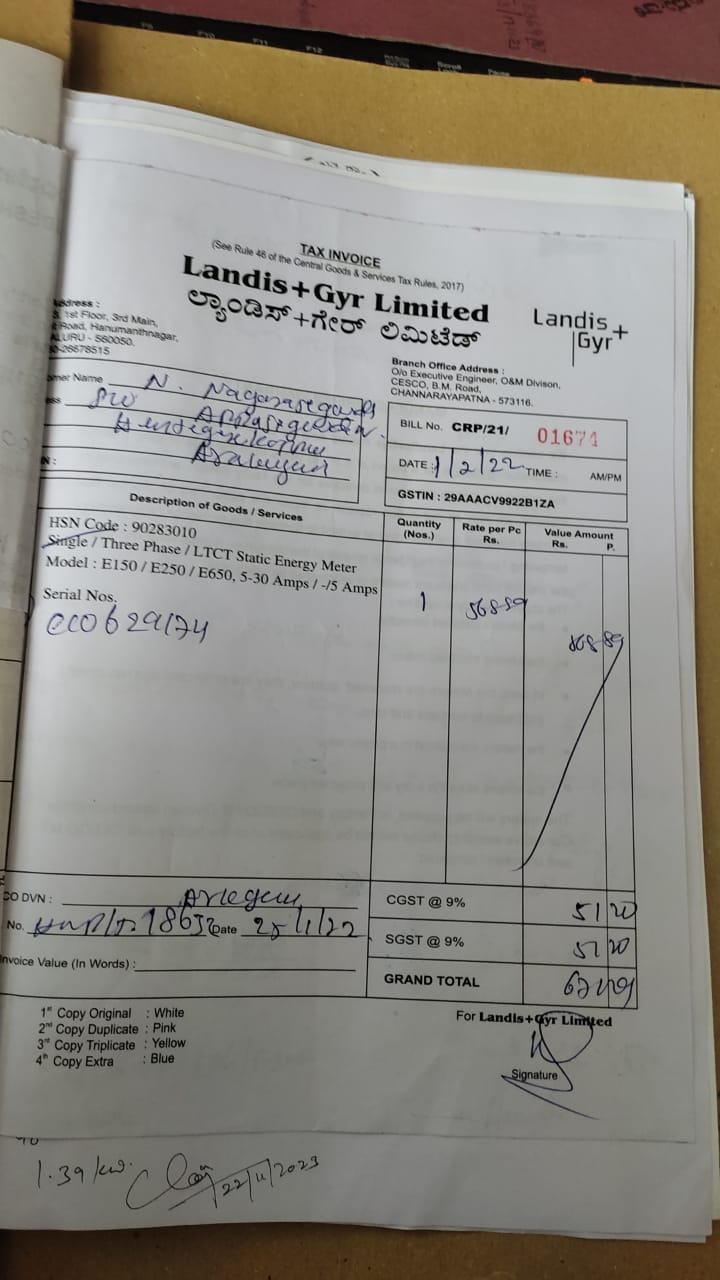 TAX INVOICE
(See Rule 46 of the Central Goods & Services Tax Rules, 2017)
Landis+Gyr Limited
ಲ್ಯಾಂಡಿಸ್+ಗೇರ್ ಲಿಮಿಟೆಡ್
Landis+
Gyr
ddress :
1st Floor, 3rd Main,
Road, Hanumanthnagar,
ALURU - 560050.
0-26678515
Branch Office Address :
O/o Executive Engineer, O&M Divison,
CESCO, B.M. Road,
CHANNARAYAPATNA - 573116.
omer Name N.
ess S/o
N :
BILL No. CRP/21/ 01674
DATE : 1/2/22 TIME : AM/PM
GSTIN : 29AAACV9922B1ZA
Description of Goods / Services
Quantity (Nos.)
Rate per Pc Rs.
Value Amount Rs. P.
HSN Code : 90283010
Single / Three Phase / LTCT Static Energy Meter
Model : E150 / E250 / E650, 5-30 Amps / -/5 Amps
Serial Nos.
1 568 89
568 89
CO DVN :
No. 18652 Date 25/1/22
Invoice Value (In Words) :
CGST @ 9% 51 20
SGST @ 9% 51 20
GRAND TOTAL
1st Copy Original : White
2nd Copy Duplicate : Pink
3rd Copy Triplicate : Yellow
4th Copy Extra : Blue
For Landis+Gyr Limited
Signature
1.39 kw.
22/11/2023